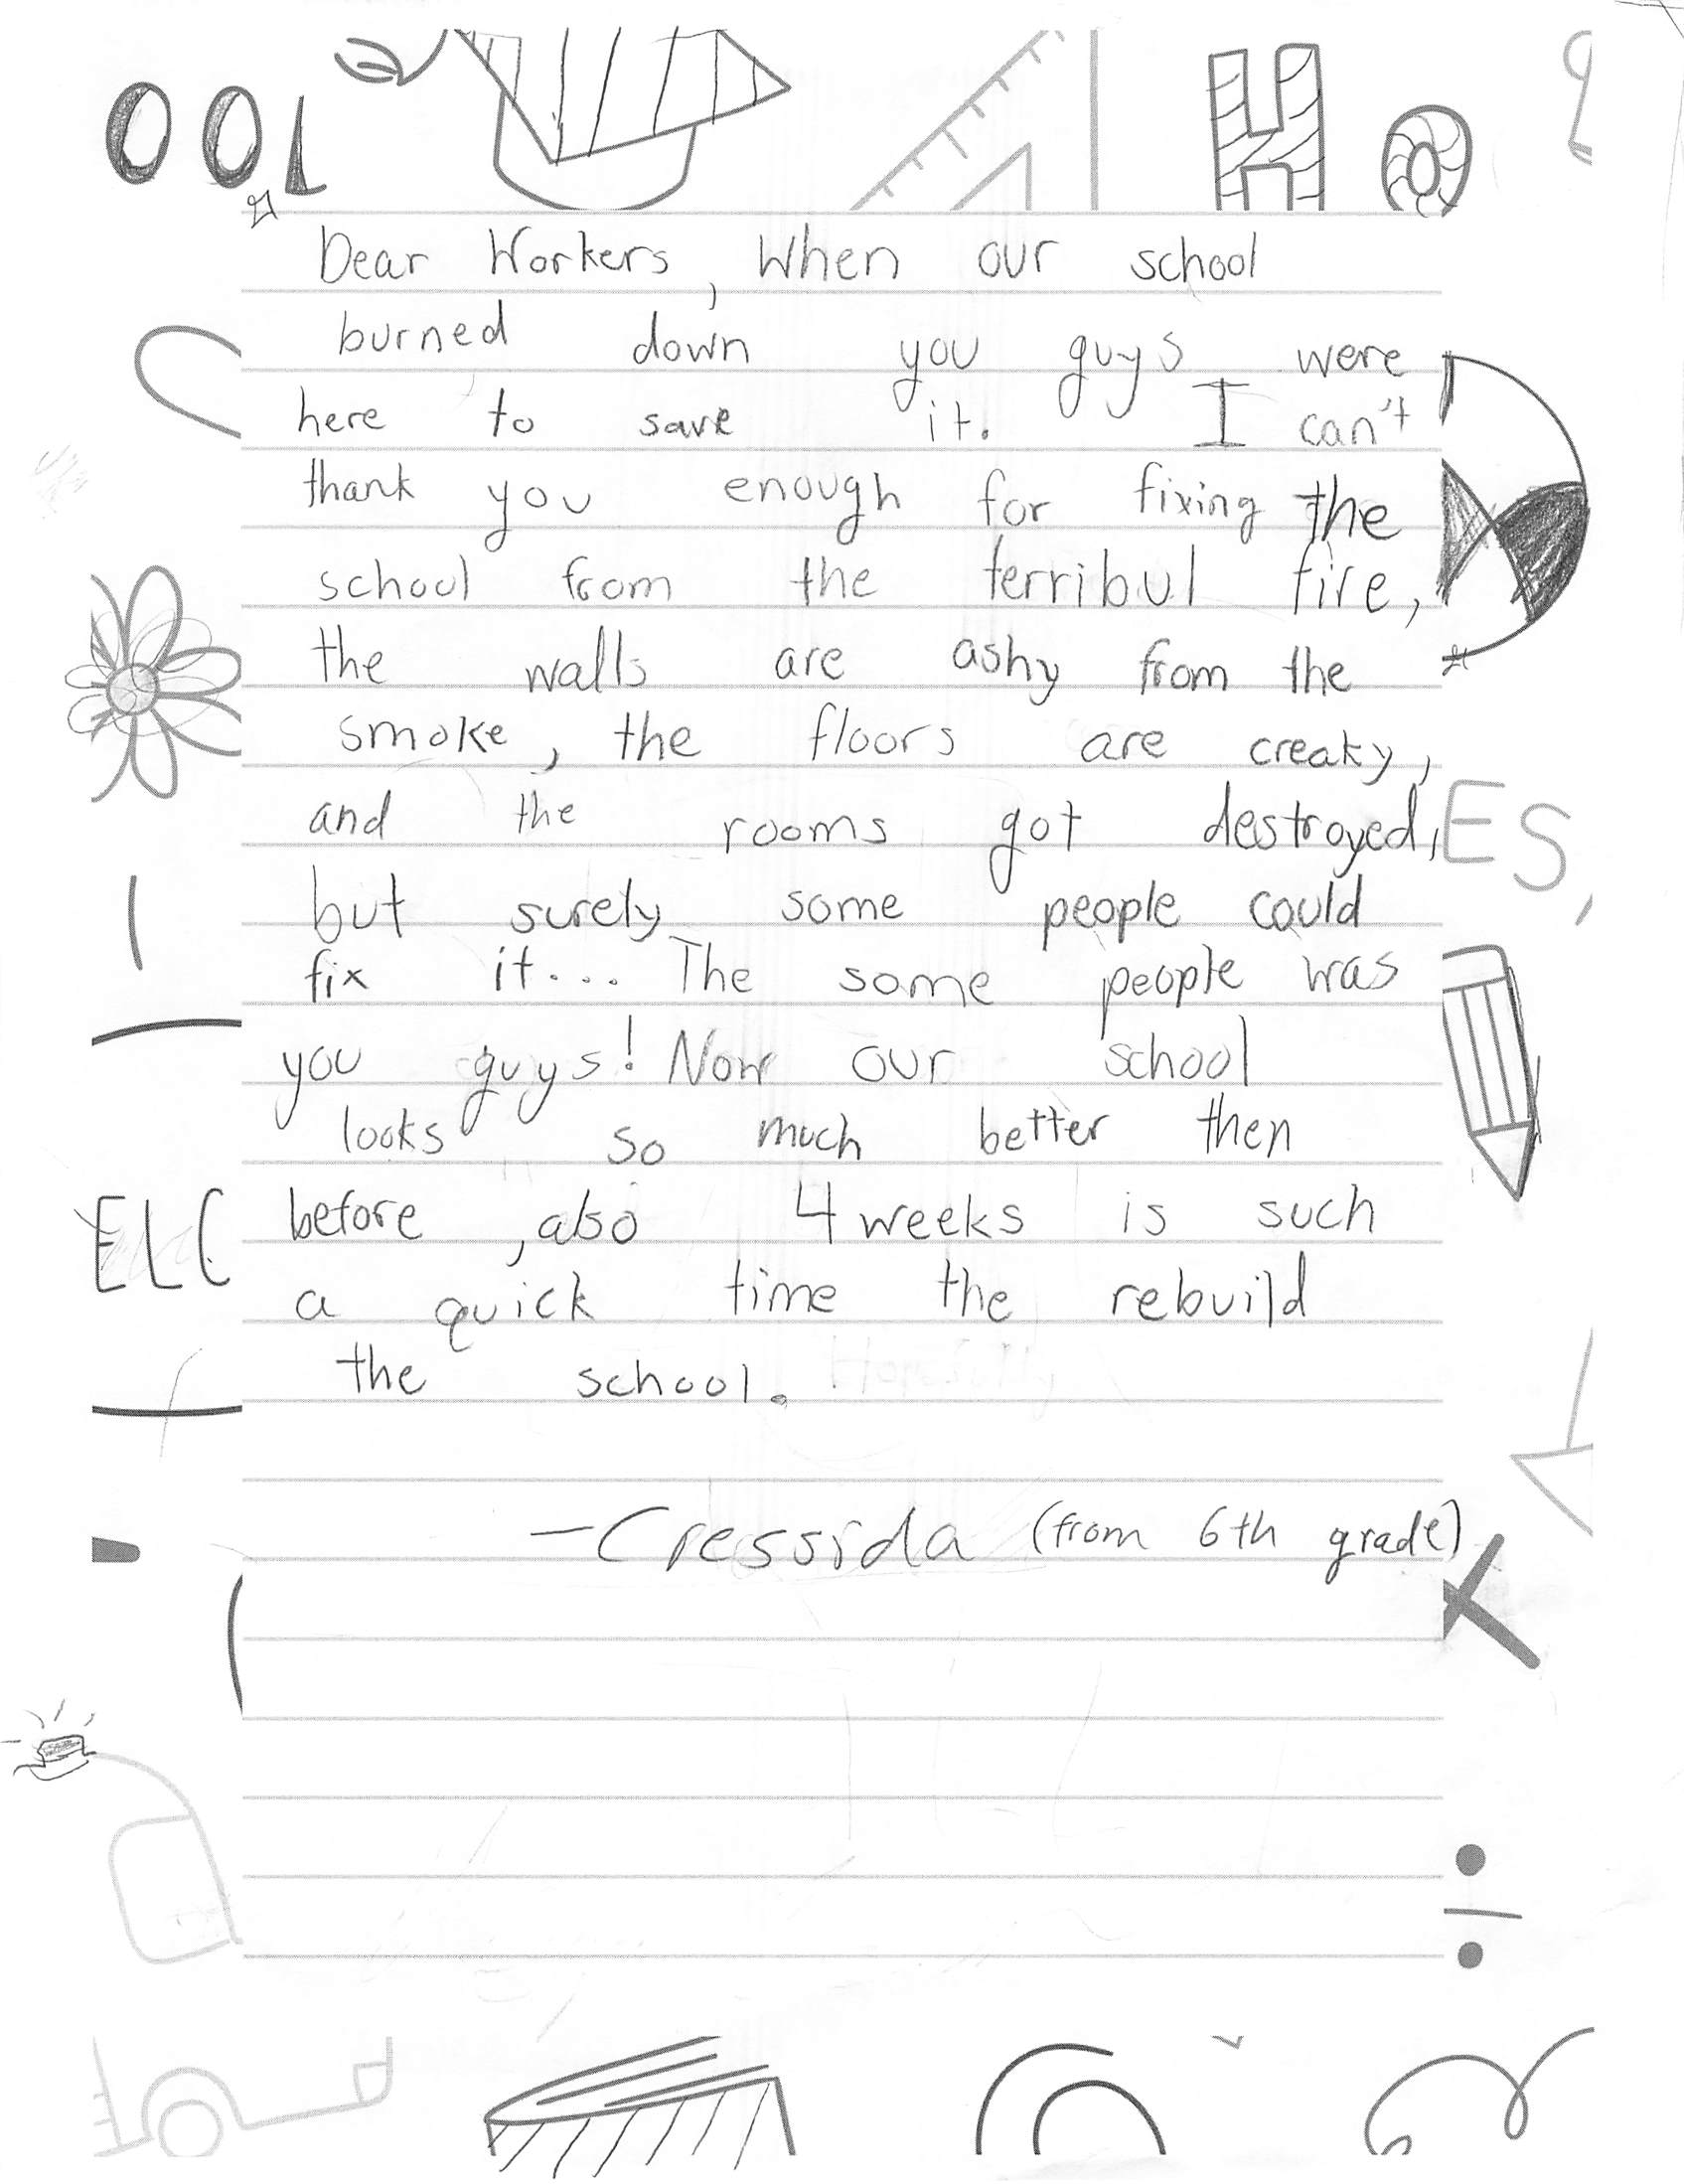 OOL
H
Dear Workers, When our school
burned down you guys were
here to save it. I can't
thank you enough for fixing the
school from the terribul fire,
the walls are ashy from the
smoke, the floors are creaky,
and the rooms got destroyed,
ES,
but surely some people could
fix it... The some people was
you guys! Now our school
looks so much better then
ELC
before, also 4 weeks is such
a quick time the rebuild
the school.
-Cressida (from 6th grade)